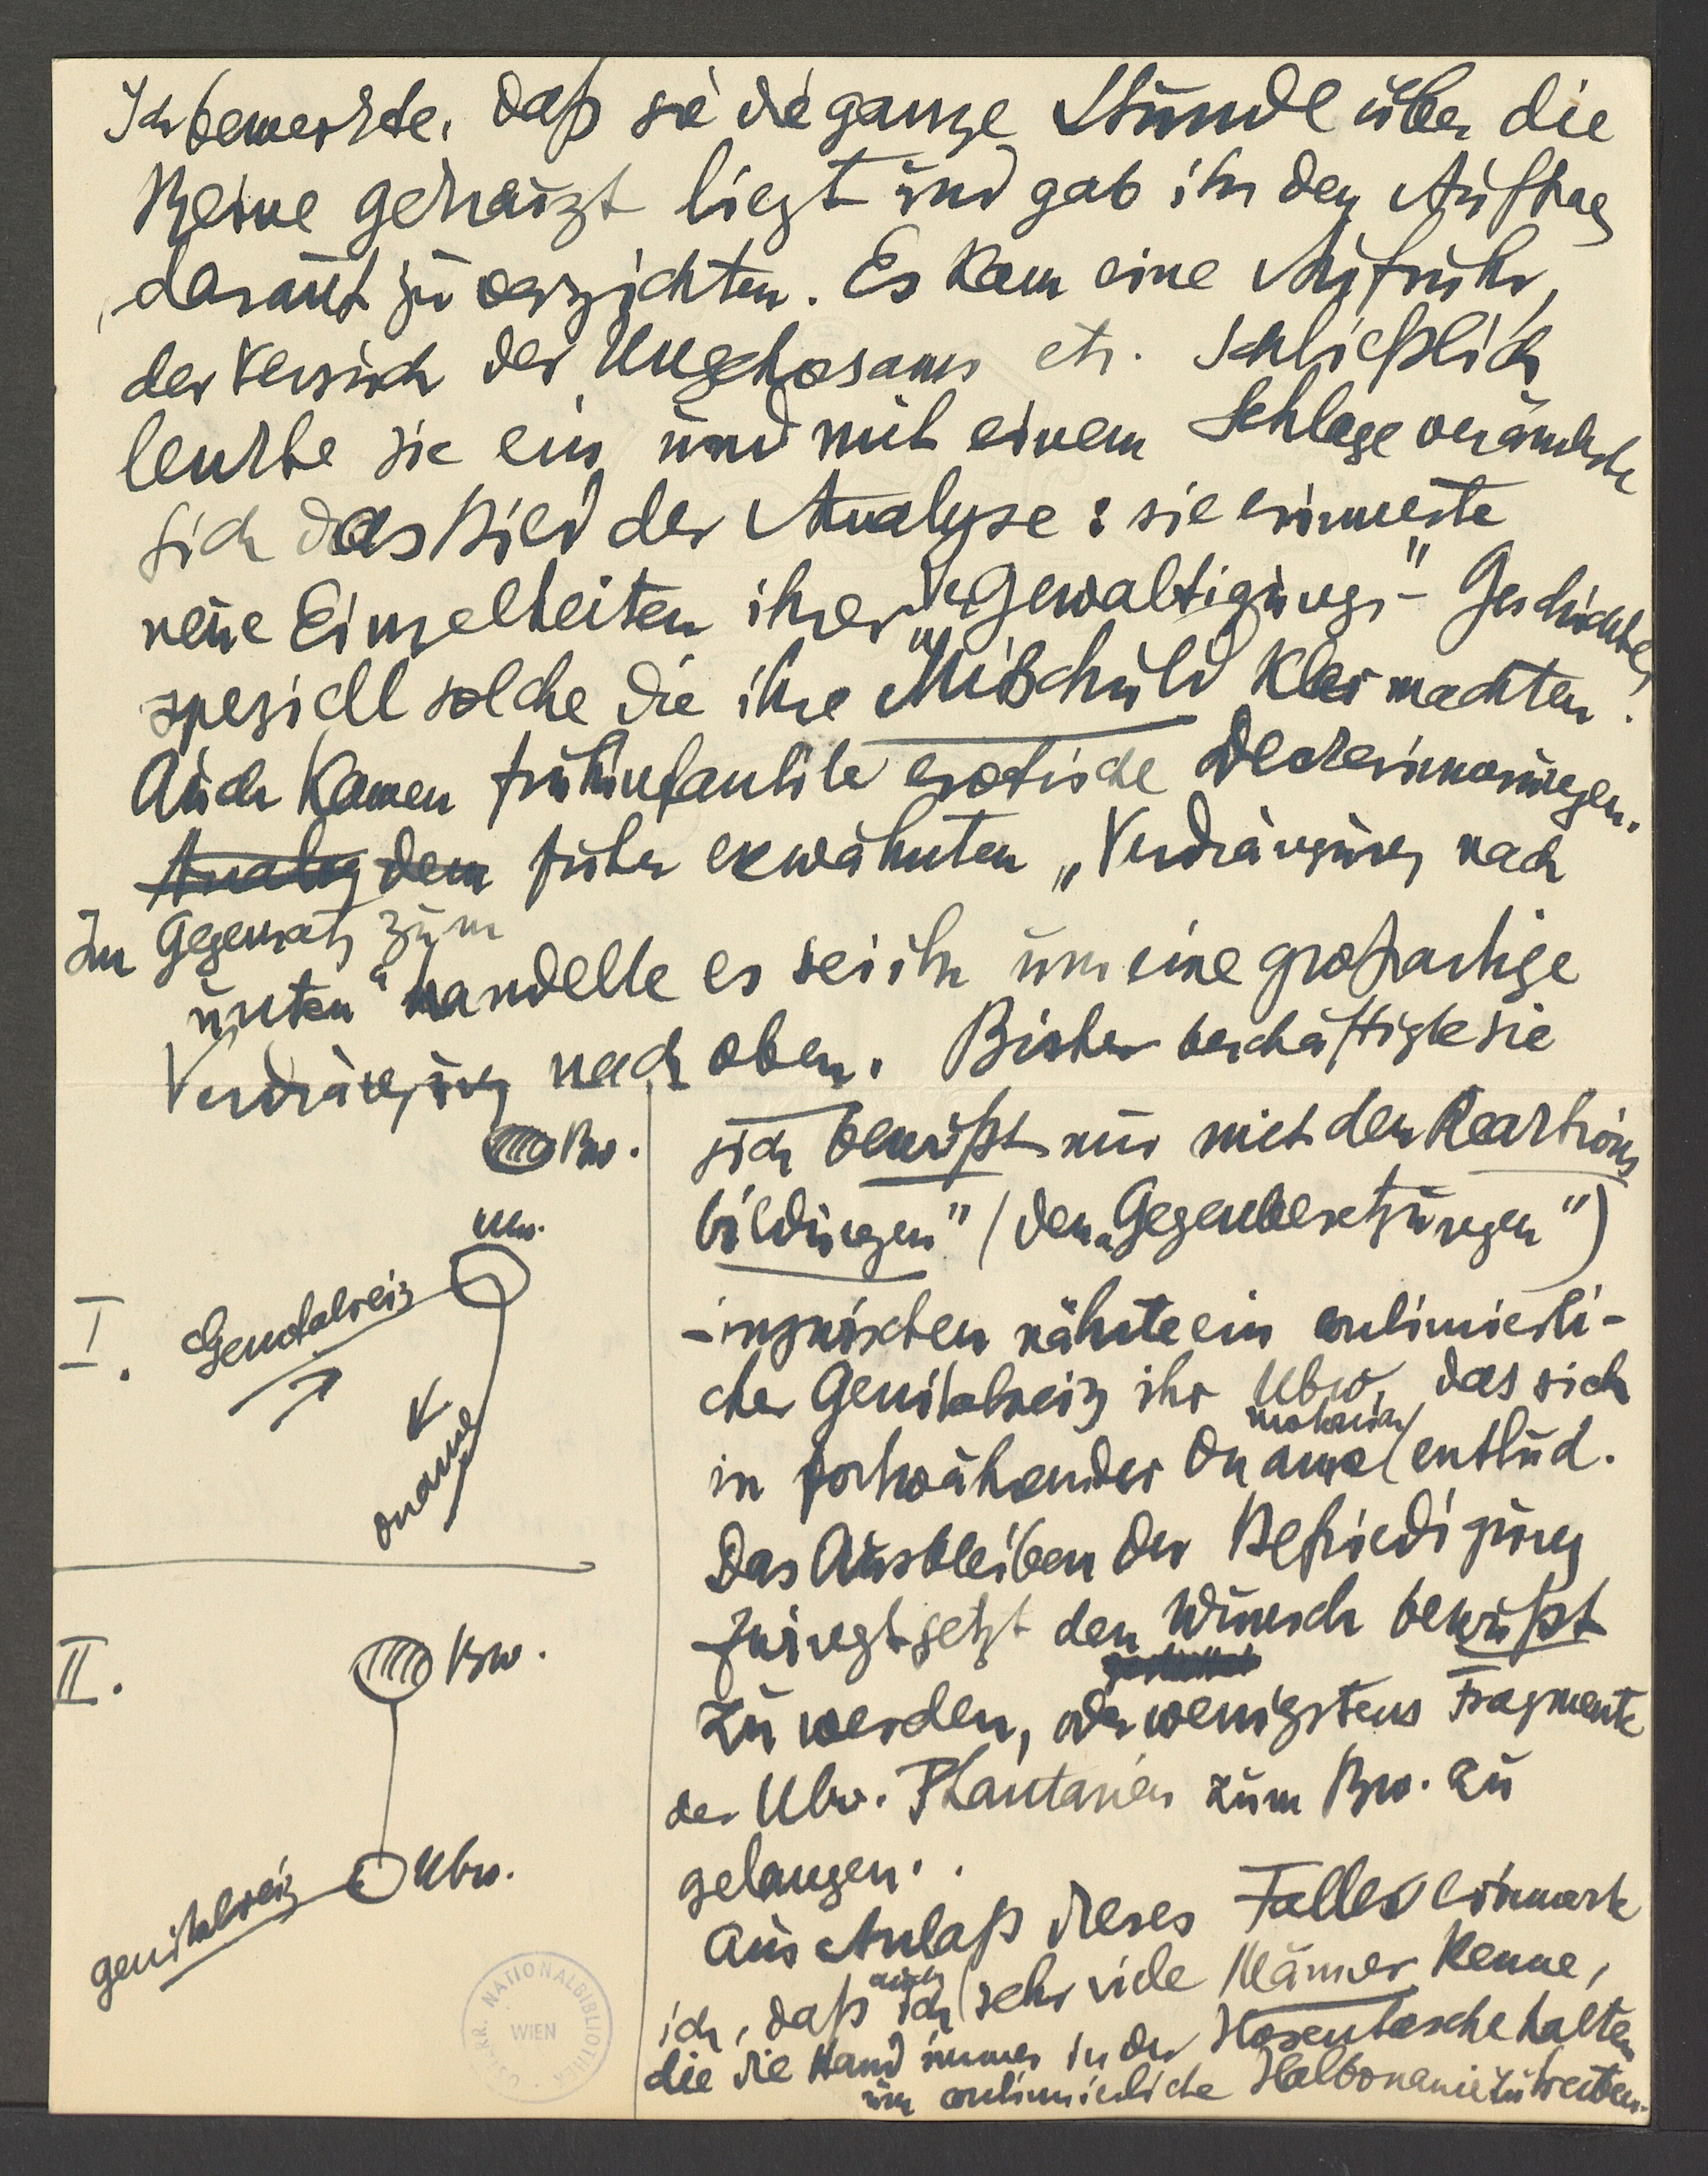 Ich bemerkte, daß sie die ganze Stunde über die
Beine gekreuzt liegt und gab ihr den Auftrag
darauf zu verzichten. Es kam eine Aufruhr,
der Versuch des Ungehorsams etc. Schließlich
lenkte sie ein und mit einem Schlage veränderte
sich das Bild der Analyse: sie erinnerte
neue Einzelheiten ihrer „Vergewaltigungs"- Geschichte,
speziell solche die ihre Mitschuld klar machten.
Auch kamen frühinfantile erotische Deckerinnerungen.
Analog dem früher erwähnten „Verdrängung nach
Im Gegensatz zum
unten" handelte es sei ihr um eine großartige
Verdrängung nach oben. Bisher beschäftigte sie
sich bewußt nur mit den Reaktions
bildungen" (den „Gegenbesetzungen")
- inzwischen nährte ein continuierli-
cher Genitalreiz ihr Ubw, das sich
in fortwährender Onanie motorisch entlud.
Das Ausbleiben der Befriedigung
zwingt jetzt den Wunsch bewußt
zu werden, oder wenigstens Fragmente
der Ubw. Phantasien zum Bw. zu
gelangen.
Aus Anlaß dieses Falles erinnerte
ich, daß ich auch sehr viele Männer kenne,
die die Hand immer in der Hosentasche halten
um continuierliche Halbonanie zu treiben.
Bw.
Ubw.
I. Genitalreiz
Onanie
II.
Bw.
Ubw.
genitalreiz
ÖSTERR. NATIONALBIBLIOTHEK
WIEN